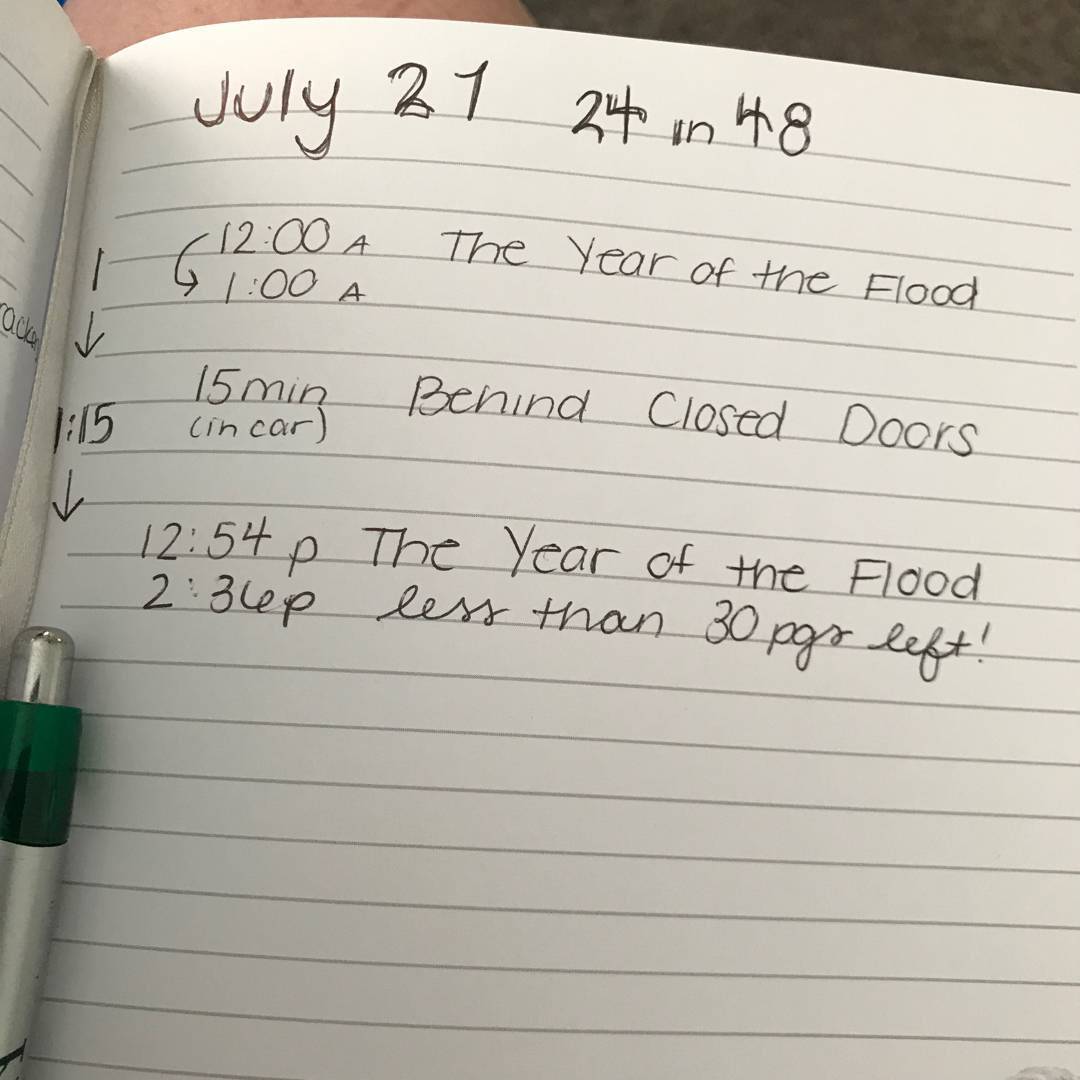 July 21 24 in 48
12:00 A The Year of the Flood
1 1:00 A
15min Behind Closed Doors
1:15 (in car)
12:54 p The Year of the Flood
2:36p less than 30 pgs left!